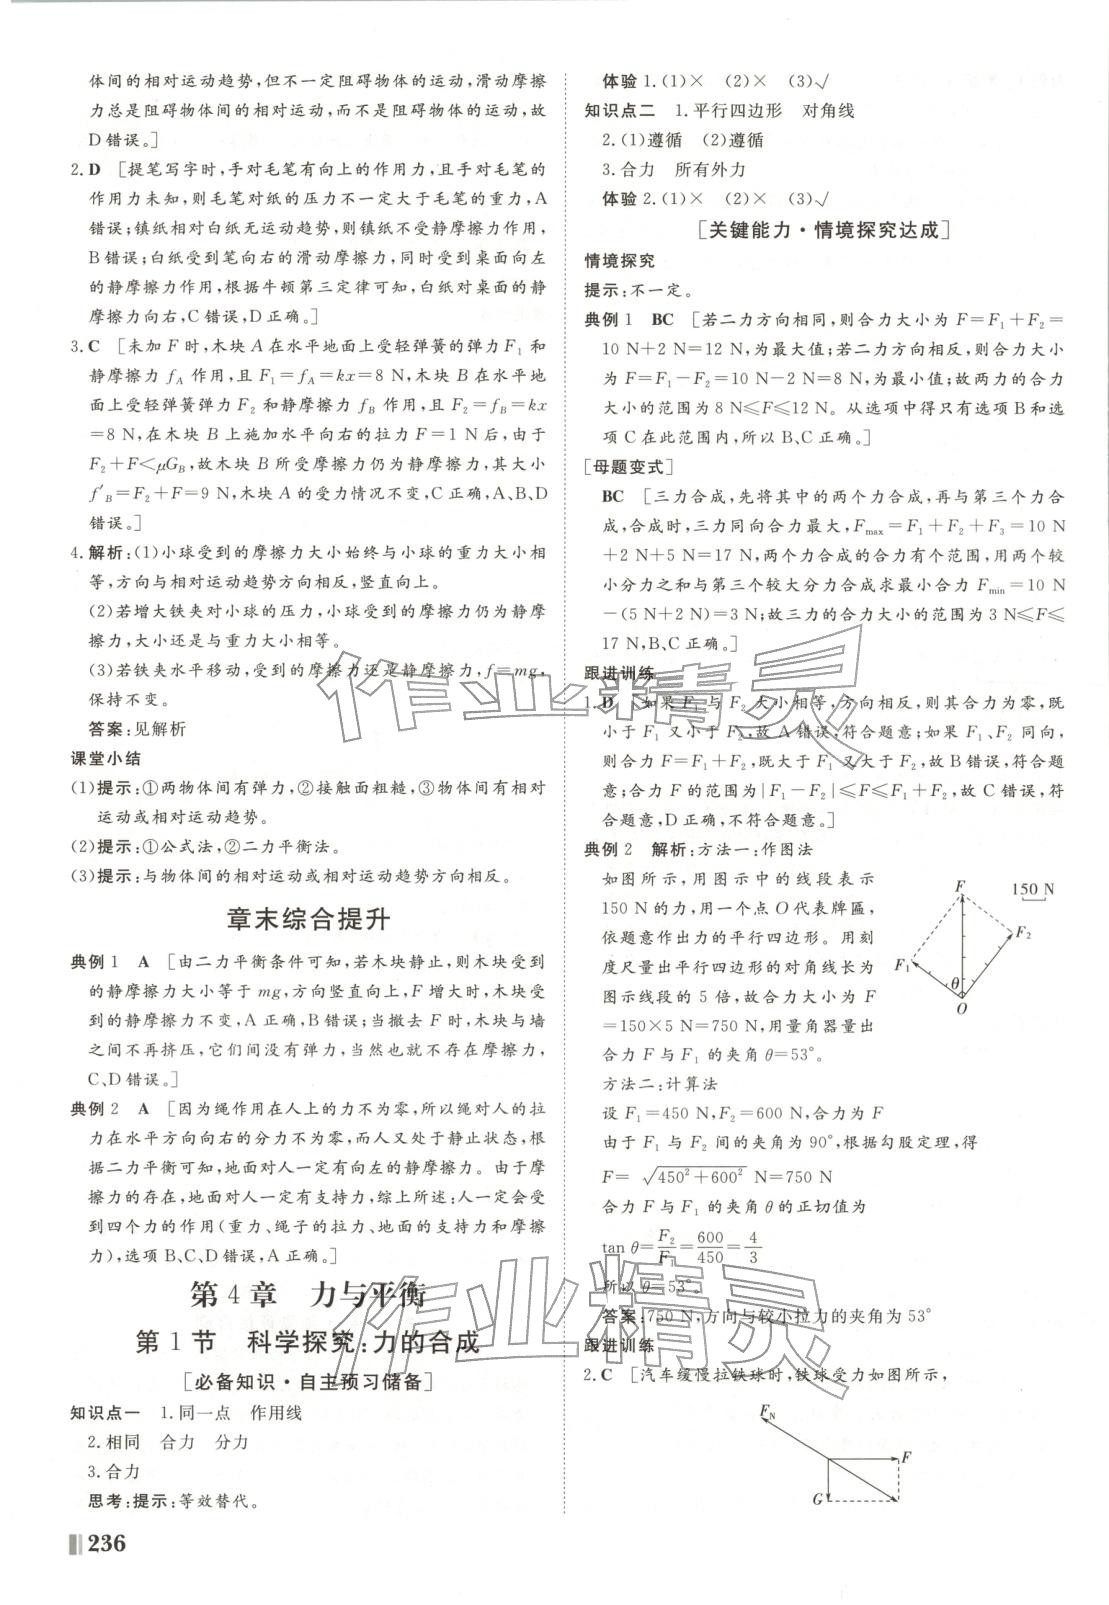 体间的相对运动趋势,但不一定阻碍物体的运动,滑动摩擦
力总是阻碍物体间的相对运动,而不是阻碍物体的运动,故
D错误。]
2.D [提笔写字时,手对毛笔有向上的作用力,且手对毛笔的
作用力未知,则毛笔对纸的压力不一定大于毛笔的重力,A
错误;镇纸相对白纸无运动趋势,则镇纸不受静摩擦力作用,
B错误;白纸受到笔向右的滑动摩擦力,同时受到桌面向左
的静摩擦力作用,根据牛顿第三定律可知,白纸对桌面的静
摩擦力向右,C错误,D正确。]
3.C [未加F时,木块A在水平地面上受轻弹簧的弹力F₁和
静摩擦力f_A作用,且F₁=f_A=kx=8 N,木块B在水平地
面上受轻弹簧弹力F₂和静摩擦力f_B作用,且F₂=f_B=kx
=8 N,在木块B上施加水平向右的拉力F=1 N后,由于
F₂+F<μG_B,故木块B所受摩擦力仍为静摩擦力,其大小
f′_B=F₂+F=9 N,木块A的受力情况不变,C正确,A、B、D
错误。]
4.解析:(1)小球受到的摩擦力大小始终与小球的重力大小相
等,方向与相对运动趋势方向相反,竖直向上。
(2)若增大铁夹对小球的压力,小球受到的摩擦力仍为静摩
擦力,大小还是与重力大小相等。
(3)若铁夹水平移动,受到的摩擦力还是静摩擦力,f=mg,
保持不变。
答案:见解析
课堂小结
(1)提示:①两物体间有弹力,②接触面粗糙,③物体间有相对
运动或相对运动趋势。
(2)提示:①公式法,②二力平衡法。
(3)提示:与物体间的相对运动或相对运动趋势方向相反。
章末综合提升
典例1 A [由二力平衡条件可知,若木块静止,则木块受到
的静摩擦力大小等于mg,方向竖直向上,F增大时,木块受
到的静摩擦力不变,A正确,B错误;当撤去F时,木块与墙
之间不再挤压,它们间没有弹力,当然也就不存在摩擦力,
C、D错误。]
典例2 A [因为绳作用在人上的力不为零,所以绳对人的拉
力在水平方向向右的分力不为零,而人又处于静止状态,根
据二力平衡可知,地面对人一定有向左的静摩擦力。由于摩
擦力的存在,地面对人一定有支持力,综上所述:人一定会受
到四个力的作用(重力、绳子的拉力、地面的支持力和摩擦
力),选项B、C、D错误,A正确。]
第4章 力与平衡
第1节 科学探究:力的合成
[必备知识·自主预习储备]
知识点一 1.同一点 作用线
2.相同 合力 分力
3.合力
思考:提示:等效替代。
236
体验1.(1)× (2)× (3)√
知识点二 1.平行四边形 对角线
2.(1)遵循 (2)遵循
3.合力 所有外力
体验2.(1)× (2)× (3)√
[关键能力·情境探究达成]
情境探究
提示:不一定。
典例1 BC [若二力方向相同,则合力大小为F=F₁+F₂=
10 N+2 N=12 N,为最大值;若二力方向相反,则合力大小
为F=F₁-F₂=10 N-2 N=8 N,为最小值;故两力的合力
大小的范围为8 N≤F≤12 N。从选项中得只有选项B和选
项C在此范围内,所以B、C正确。]
[母题变式]
BC [三力合成,先将其中的两个力合成,再与第三个力合
成,合成时,三力同向合力最大,F_max=F₁+F₂+F₃=10 N
+2 N+5 N=17 N,两个力合成的合力有个范围,用两个较
小分力之和与第三个较大分力合成求最小合力F_min=10 N
-(5 N+2 N)=3 N;故三力的合力大小的范围为3 N≤F≤
17 N,B、C正确。]
跟进训练
1.D [如果F₁与F₂大小相等,方向相反,则其合力为零,既
小于F₁又小于F₂,故A错误;符合题意;如果F₁、F₂同向,
则合力F=F₁+F₂,既大于F₁又大于F₂,故B错误,符合题
意;合力F的范围为|F₁-F₂|≤F≤F₁+F₂,故C错误,符
合题意,D正确,不符合题意。]
典例2 解析:方法一:作图法
如图所示,用图示中的线段表示
150 N的力,用一个点O代表牌匾,
依题意作出力的平行四边形。用刻
度尺量出平行四边形的对角线长为
图示线段的5倍,故合力大小为F
=150×5 N=750 N,用量角器量出
合力F与F₁的夹角θ=53°。
F
150 N
F₂
F₁
θ
O
方法二:计算法
设F₁=450 N,F₂=600 N,合力为F
由于F₁与F₂间的夹角为90°,根据勾股定理,得
F=√(450²+600²) N=750 N
合力F与F₁的夹角θ的正切值为
tan θ=F₂/F₁=600/450=4/3
所以θ=53°。
答案:750 N,方向与较小拉力的夹角为53°
跟进训练
2.C [汽车缓慢拉铁球时,铁球受力如图所示,
F_N
F
G
作业精灵
作业精灵